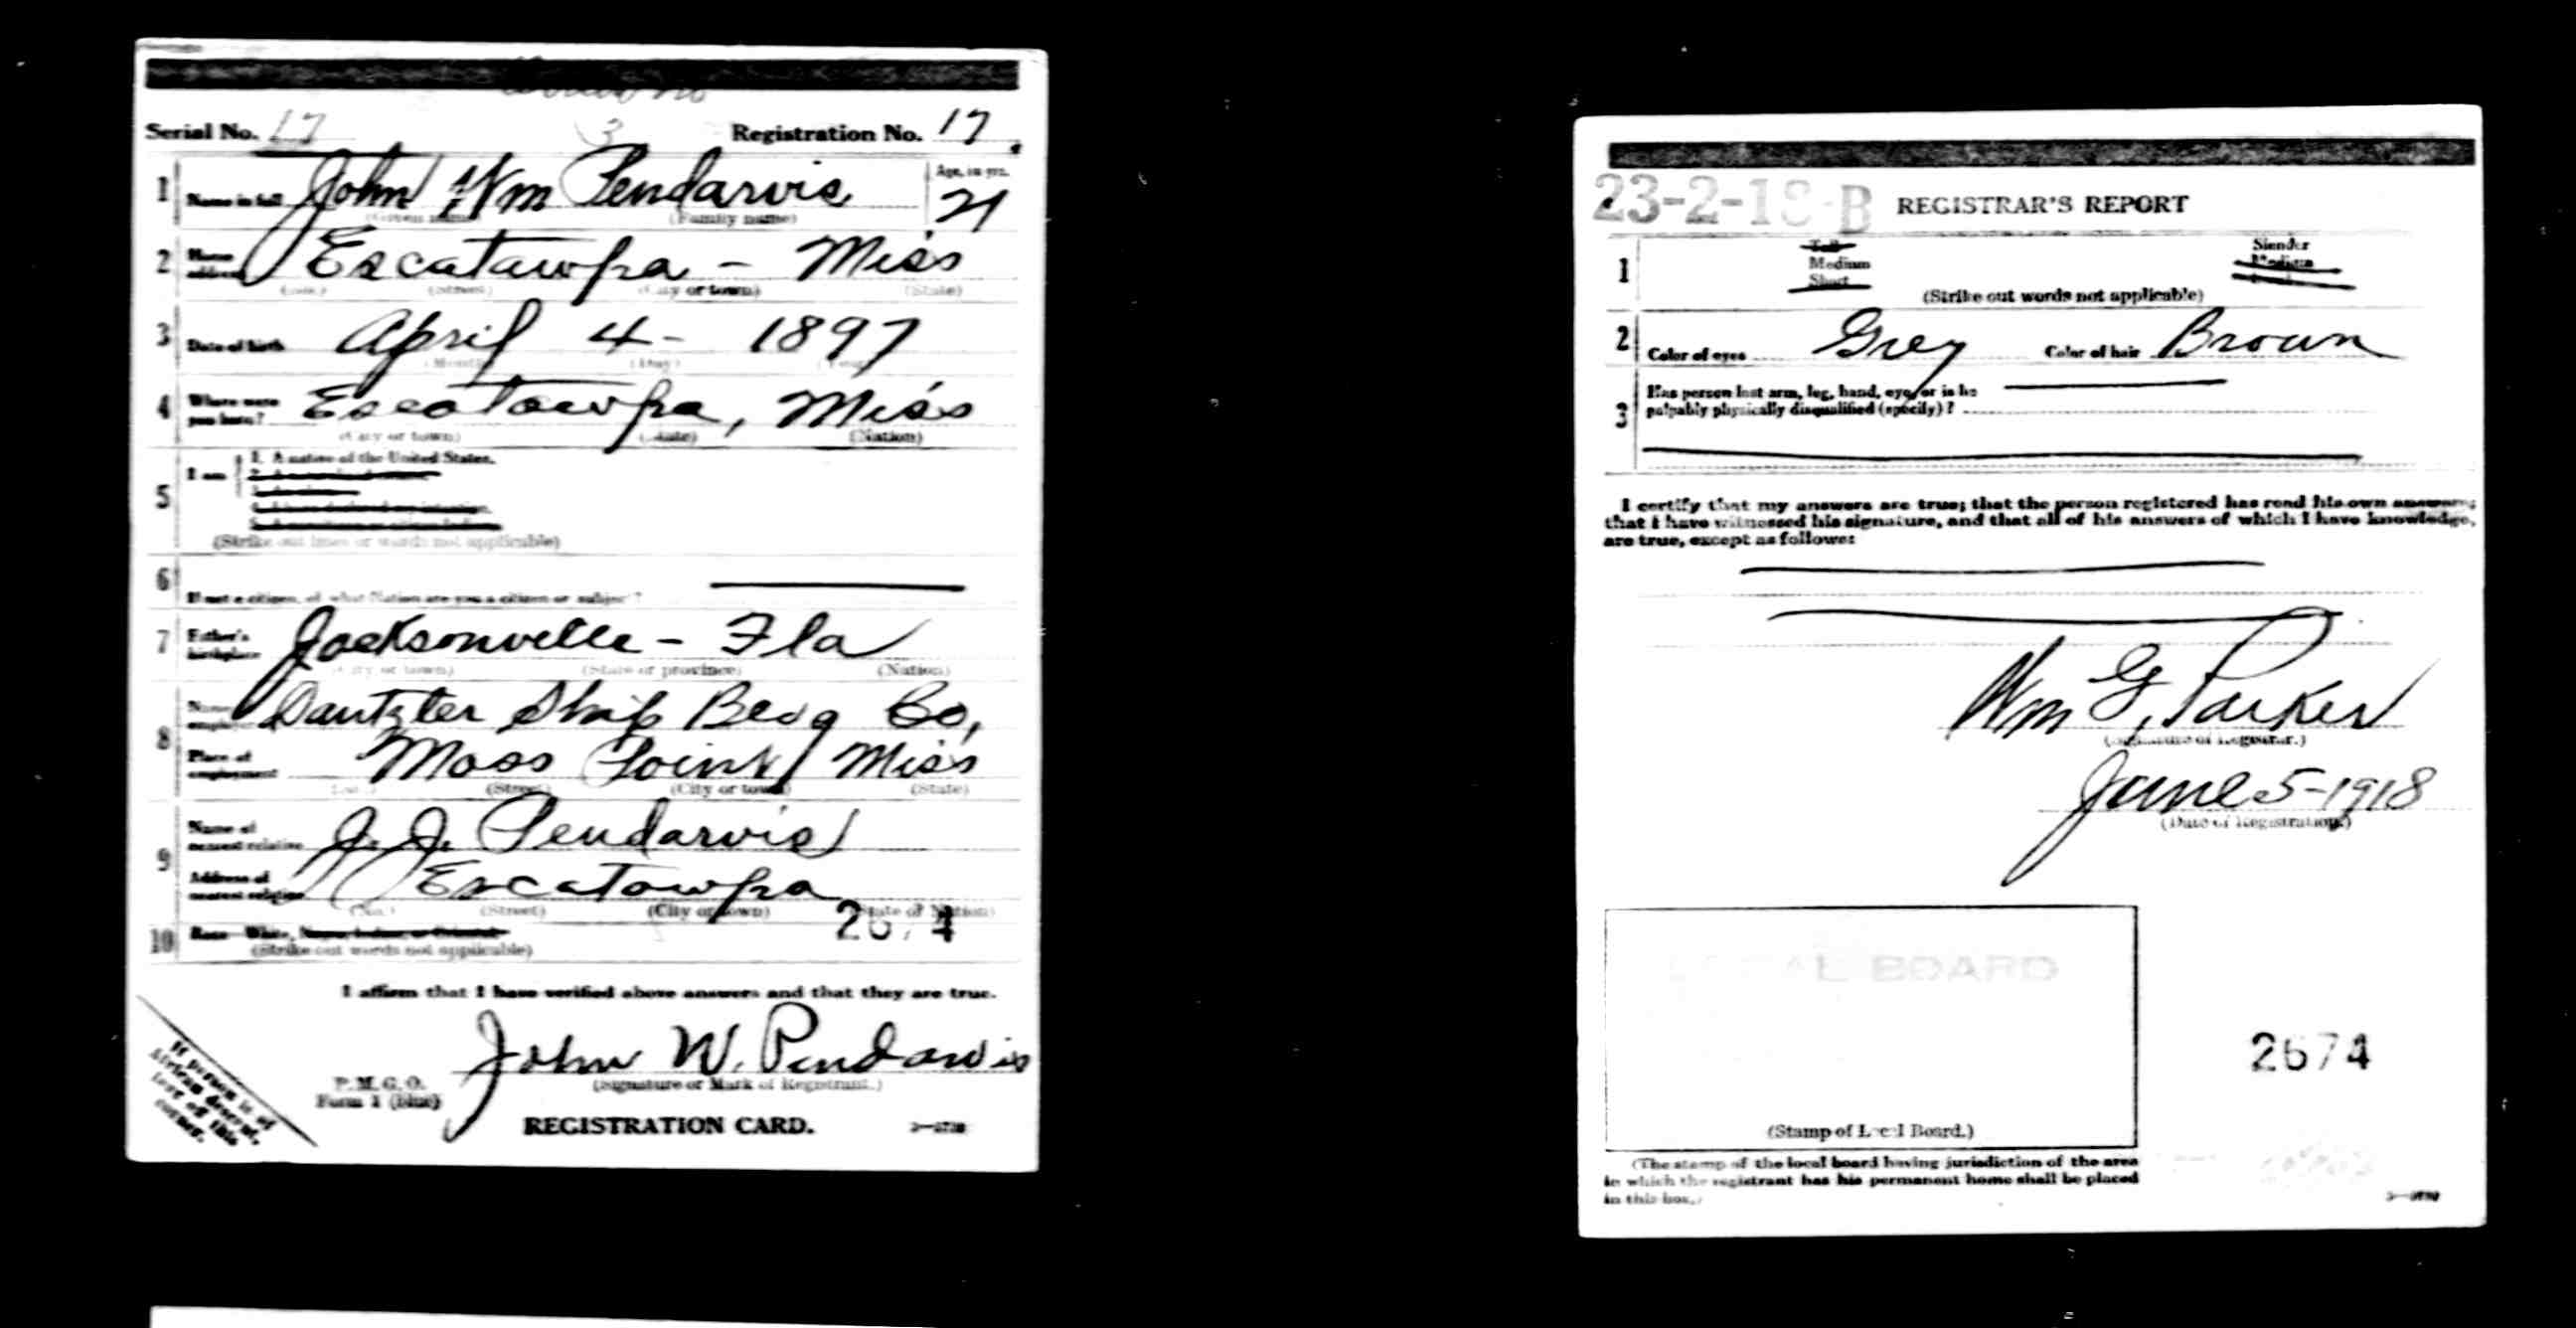 Serial No. 17 3 Registration No. 17
1 Name in full John Wm Pendarvis Age, in yrs. 21
(Given name) (Family name)
2 Home address Escatawpa - Miss
(No.) (Street) (City or town) (State)
3 Date of birth April 4 - 1897
(Month) (Day) (Year)
4 Where were you born? Escatawpa, Miss
(City or town) (State) (Nation)
5 I am 1. A native of the United States.
(Strike out lines or words not applicable)
6 If not a citizen, of what Nation are you a citizen or subject?
7 Father's birthplace Jacksonville - Fla
(City or town) (State or province) (Nation)
8 Dantzler Ship Bldg Co,
Place of employment Moss Point Miss
(No.) (Street) (City or town) (State)
9 Name of nearest relative J. J. Pendarvis
Address of nearest relative Escatawpa
(No.) (Street) (City or town) (State or Nation)
10 Race White, Negro, Indian, or Oriental 2674
(Strike out words not applicable)
I affirm that I have verified above answers and that they are true.
John W. Pendarvis
(Signature or Mark of Registrant.)
P. M. G. O.
Form 1 (blue)
REGISTRATION CARD.
If person is of
African descent,
tear off this
corner.
23-2-18-B REGISTRAR'S REPORT
1 Tall Slender
Medium Medium
Short
(Strike out words not applicable)
2 Color of eyes Grey Color of hair Brown
3 Has person lost arm, leg, hand, eye, or is he
palpably physically disqualified (specify)?
I certify that my answers are true; that the person registered has read his own answers;
that I have witnessed his signature, and that all of his answers of which I have knowledge,
are true, except as follows:
Wm G, Parker
(Signature of Registrar.)
June 5-1918
(Date of Registration)
LOCAL BOARD
2674
(Stamp of Local Board.)
(The stamp of the local board having jurisdiction of the area
in which the registrant has his permanent home shall be placed
in this box.)